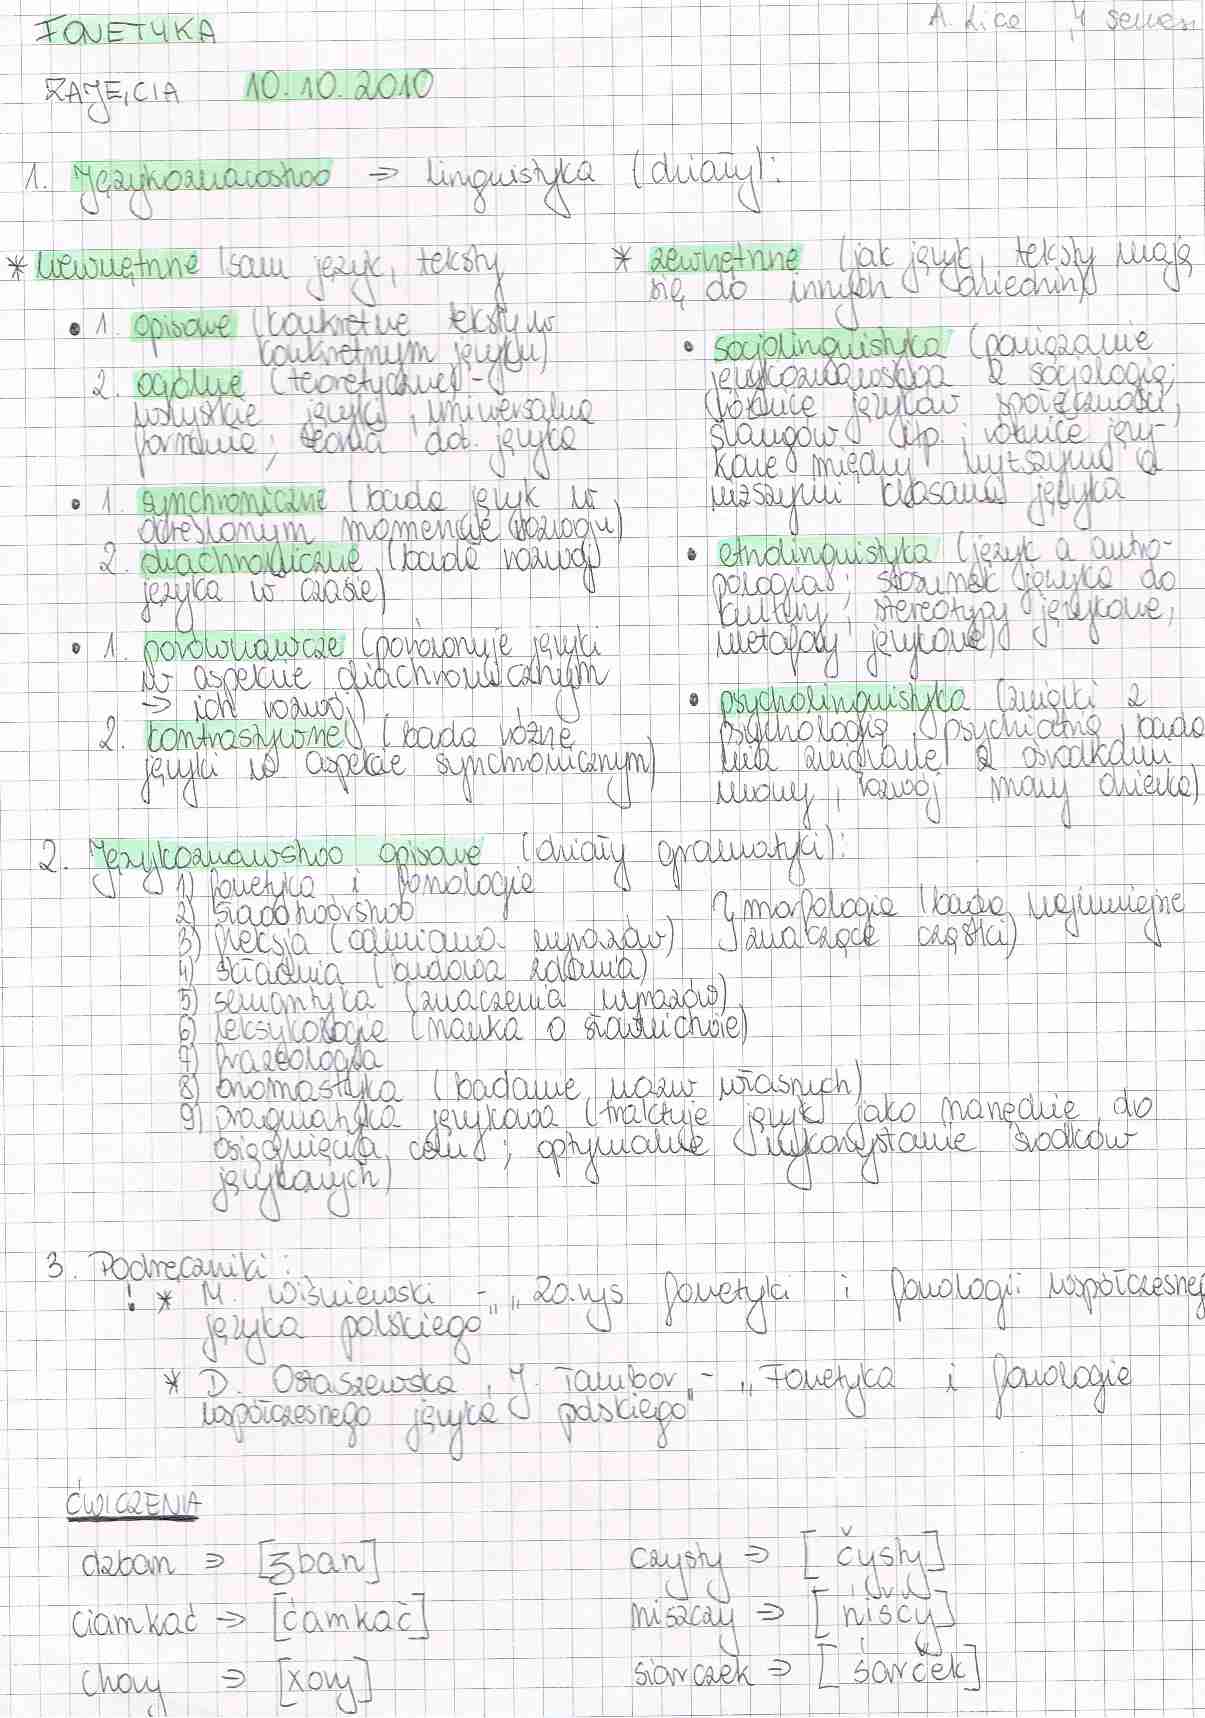 FONETYKA
A. Lice , 4 semes
ZAJĘCIA 10.10.2010
1. Językoznawstwo => linguistyka (działy):
* wewnętrzne (sam język, teksty
• 1. opisowe (konkretne teksty w
konkretnym języku)
2. ogólne (teoretyczne) -
wszystkie języki, uniwersalne
formalnie; teoria dot. języka
• 1. synchroniczne (bada język w
określonym momencie rozwoju)
2. diachroniczne (bada rozwój
języka w czasie)
• 1. porównawcze (porównuje języki
w aspekcie diachronicznym
-> ich rozwój)
2. kontrastywne (bada różne
języki w aspekcie synchronicznym)
* zewnętrzne (jak język, teksty mają
się do innych dziedzin)
• socjolinguistyka (powiązanie
językoznawstwa z socjologią;
różnice języków społeczności,
slangów itp.; różnice języ-
kowe między wyższymi a
niższymi klasami języka
• etnolinguistyka (język a antro-
pologia; stosunek języka do
kultury, stereotypy językowe,
metafory językowe)
• psycholinguistyka (związki z
psychologią, psychiatrią, bada
nia związane z ośrodkami
mowy, rozwój mowy dziecka)
2. Językoznawstwo opisowe (działy gramatyki):
1) fonetyka i fonologia
2) słowotwórstwo
3) fleksja (odmiana wyrazów) } morfologia (bada najmniejsze
znaczące cząstki)
4) składnia (budowa zdania)
5) semantyka (znaczenia wyrazów)
6) leksykologie (nauka o słownictwie)
7) frazeologia
8) onomastyka (badanie nazw własnych)
9) pragmatyka językowa (traktuje język jako narzędzie do
osiągnięcia celu; optymalne wykorzystanie środków
językowych)
3. Podręczniki:
! * M. Wiśniewski - „Zarys fonetyki i fonologii współczesneg
języka polskiego"
* D. Ostaszewska, J. Tambor - „Fonetyka i fonologia
współczesnego języka polskiego"
ĆWICZENIA
dzban => [ʒban]
czysty => [čysty]
ciamkać => [ćamkać]
niszczy => [ńiščy]
chory => [xory]
siarczek => [śarček]